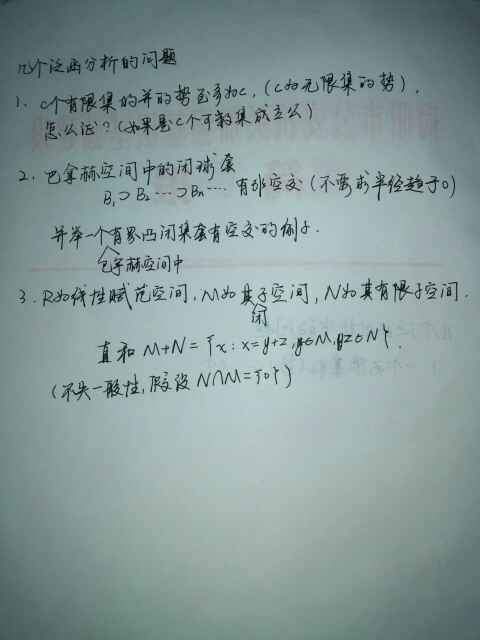 几个泛函分析的问题
1. C个有限集的并的势至多为C,(C为无限集的势).
怎么证?(如果是C个可数集成立么)
2. 巴拿赫空间中的闭球套
B₁⊃B₂…⊃Bₙ… 有非空交(不要求半径趋于0)
并举一个有界凸闭集套有空交的例子.
巴拿赫空间中
3. R为线性赋范空间, M为其子空间, N为其有限子空间.
闭
直和 M+N={x: x=y+z, y∈M, z∈N}.
(不失一般性,假设 N∩M={0})